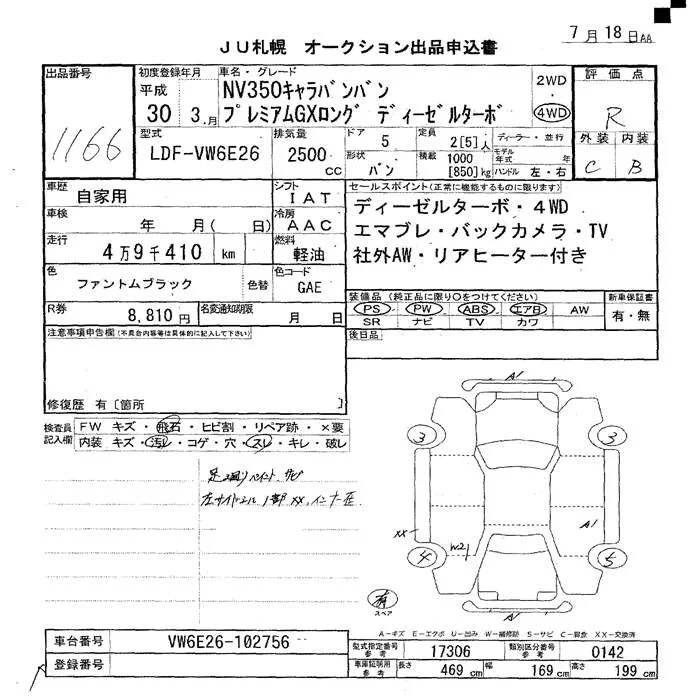 7月18日AA
JU札幌 オークション出品申込書
出品番号
1166
初度登録年月
平成
30 3.月
車名・グレード
NV350キャラバンバン
プレミアムGXロング ディーゼルターボ
2WD
4WD
評価点
R
外装 内装
C B
型式
LDF-VW6E26
排気量
2500
cc
ドア 5
形状 バン
定員 2[5]人
積載 1000
[850]kg
ディーラー・並行
モデル年式 年
ハンドル 左・右
車歴
自家用
シフト
IAT
車検
年 月( 日)
冷房
AAC
走行
4万9千410 km
燃料
軽油
色
ファントムブラック
色替
色コード
GAE
R券
8,810円
名変通知期限
月 日
セールスポイント(正常に機能するものに限ります)
ディーゼルターボ・4WD
エマブレ・バックカメラ・TV
社外AW・リアヒーター付き
装備品 (純正品に限り○をつけてください)
PS PW ABS エアB AW
SR ナビ TV カワ
新車保証書
有・無
後日品
注意事項申告欄(不具合内容等は具体的に記入して下さい)
修復歴 有〔箇所 〕
検査員記入欄
FW キズ・飛石・ヒビ割・リペア跡・×要
内装 キズ・汚レ・コゲ・穴・スレ・キレ・破レ
足廻りペイント サビ
左サイドシル 1部 XX,インナー歪
A1
3
3
XX
4
W21
A1
5
A1
有
スペア
A-キズ E-エクボ U-凹み W-補修跡 S-サビ C-腐食 XX-交換済
車台番号
VW6E26-102756
登録番号
型式指定番号
参考
17306
類別区分番号
参考
0142
車庫証明用
参考
長さ 469 cm
幅 169 cm
高さ 199 cm